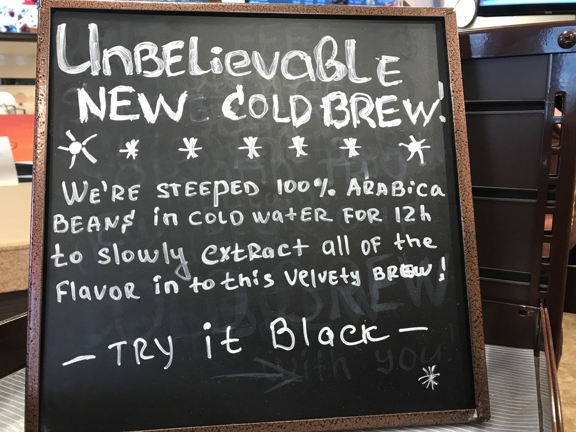 UnBELievaBLE
NEW COLD BREW!
WE'RE STEEPED 100% ARABica
BEANS in COLD WATER FOR 12h
to slowly extract all of the
FlavoR in to this VElvEty BREW!
- TRY it Black -
with you!